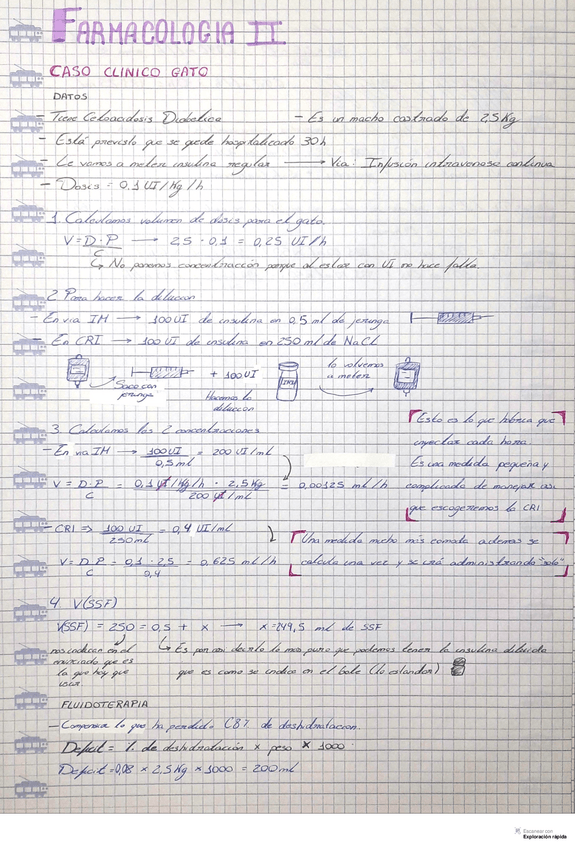 FARMACOLOGIA II
CASO CLINICO GATO
DATOS
- Tiene Cetoacidosis Diabética - Es un macho castrado de 2,5 Kg
- Está previsto que se quede hospitalizado 30h
- Le vamos a meter insulina regular → Vía: Infusión intravenosa continua
- Dosis = 0,1 UI/Kg/h
1. Calculamos volumen de dosis para el gato.
V = D·P / C → 2,5 · 0,1 = 0,25 UI/h
↳ No ponemos concentración porque al estar con UI no hace falta.
2. Para hacer la dilución
- En vía IM → 100 UI de insulina en 0,5 ml de jeringa
- En CRI → 100 UI de insulina en 250 ml de NaCl
Saco con jeringa
+ 100 UI
Hacemos la dilución
lo volvemos a meter
3. Calculamos las 2 concentraciones
- En vía IM → 100 UI / 0,5 ml = 200 UI/ml
V = D·P / C = 0,1 UI/Kg/h · 2,5 Kg / 200 UI/ml = 0,00125 ml/h
Esto es lo que habría que
inyectar cada hora.
Es una medida pequeña y
complicada de manejar así
que escogeremos la CRI
- CRI ⇒ 100 UI / 250 ml = 0,4 UI/ml
V = D·P / C = 0,1 · 2,5 / 0,4 = 0,625 ml/h
Una medida mucho más comoda ademas se
calcula una vez y se irá administrando "solo"
4. V(SSF)
V(SSF) = 250 = 0,5 + x → x = 249,5 ml de SSF
nos indican en el
enunciado que es
la que hay que
usar
↳ Es por así decirlo lo mas puro que podemos tener la insulina diluida
que es como se indica en el bote (lo estandar)
FLUIDOTERAPIA
- Compensar lo que ha perdido (8% de deshidratacion.
Deficit = % de deshidratación × peso × 1000
Deficit = 0,08 × 2,5 Kg × 1000 = 200 ml
Escanear con
Exploración rápida